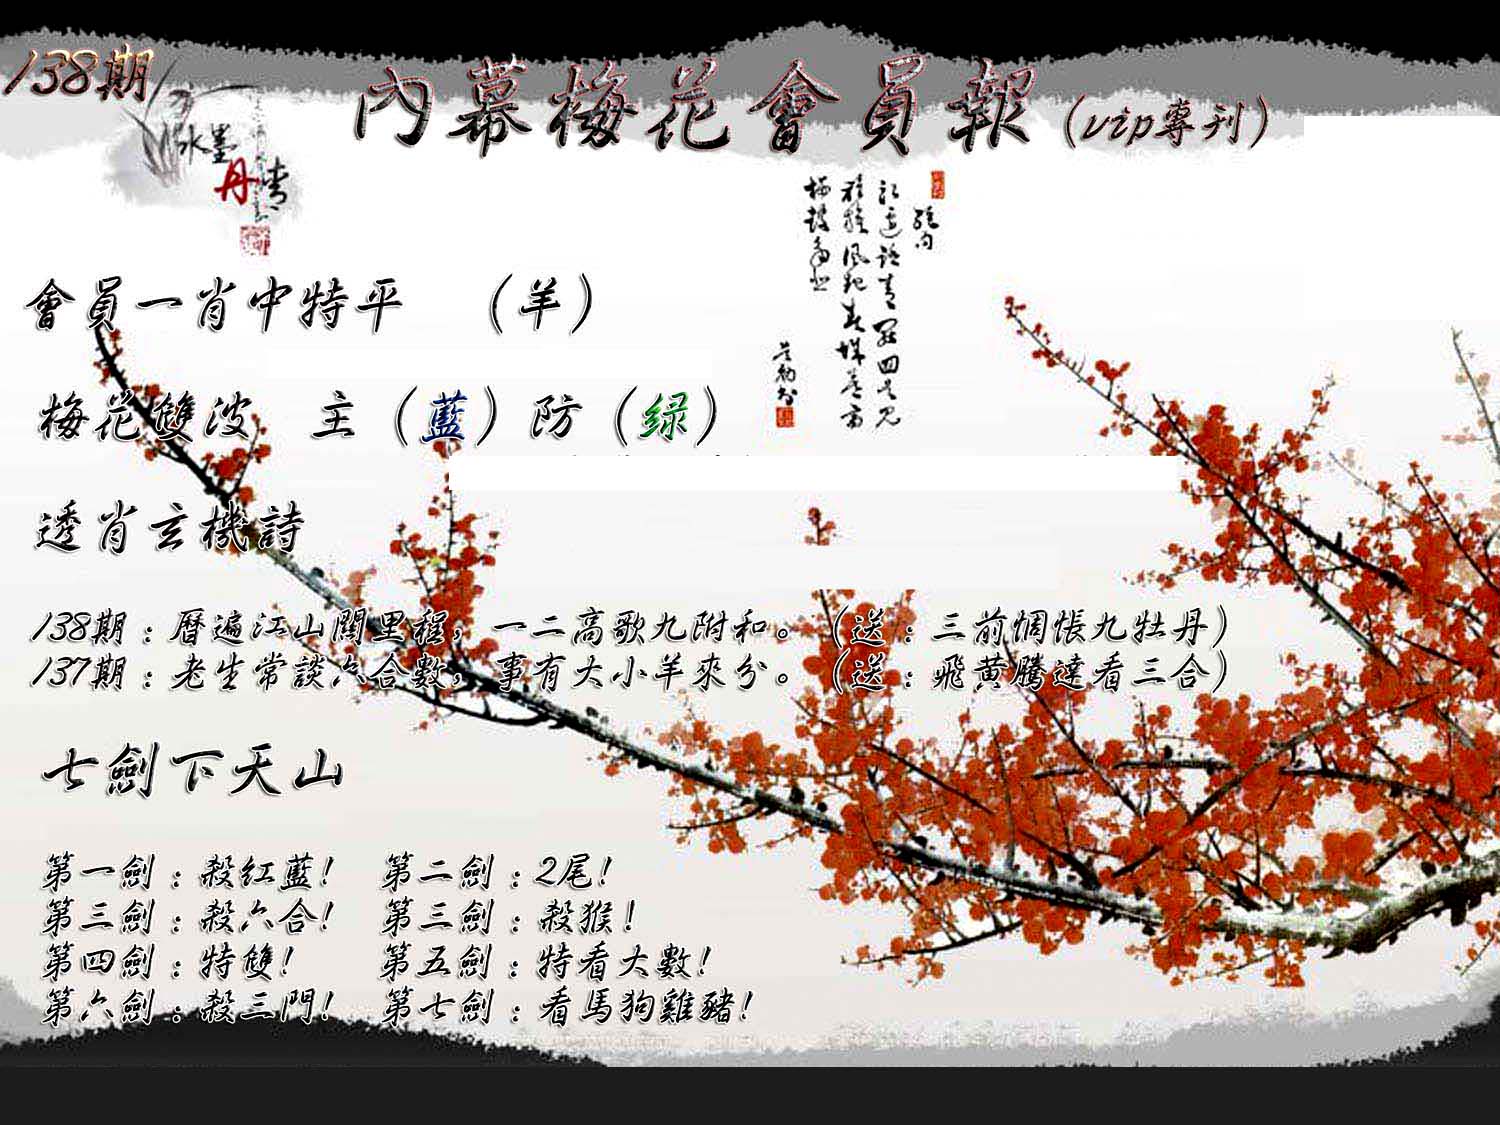 138期
內幕梅花會員報（vip專刊）
水墨
丹青
會員一肖中特平　（羊）
梅花雙波　主（藍）防（绿）
透肖玄機詩
138期：曆遍江山關里程，一二高歌九附和。（送：三前惆悵九牡丹）
137期：老生常談六合數，事有大小羊來分。（送：飛黄騰達看三合）
七劍下天山
第一劍：殺红藍！　第二劍：2尾！
第三劍：殺六合！　第三劍：殺猴！
第四劍：特雙！　第五劍：特看大數！
第六劍：殺三門！　第七劍：看馬狗雞豬！